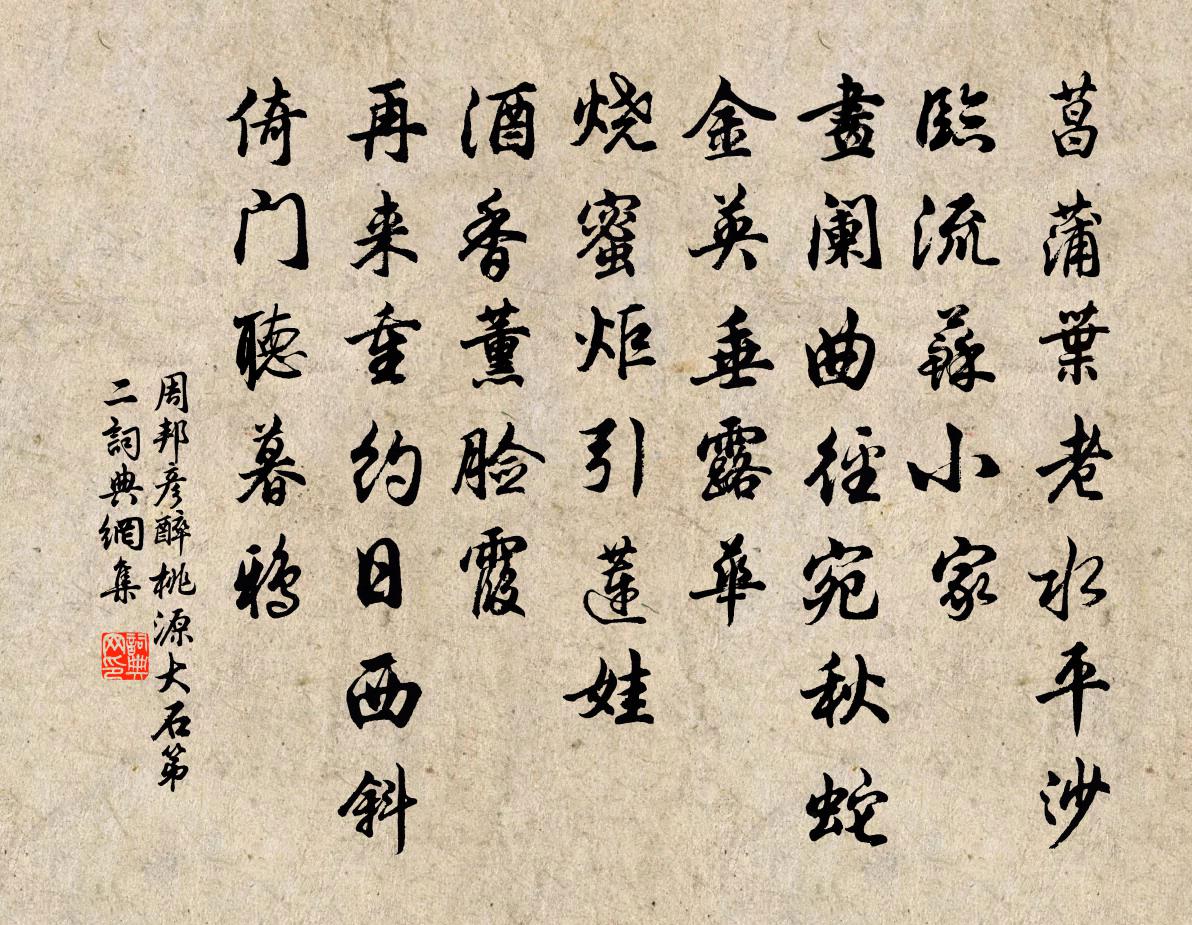 菖蒲葉老水平沙
臨流蘇小家
畫阑曲徑宛秋蛇
金英垂露華
烧蜜炬引蓮娃
酒香薰脸霞
再来重约日西斜
倚门聽暮鸦
周邦彦醉桃源大石第
二詞典網集
詞典网印